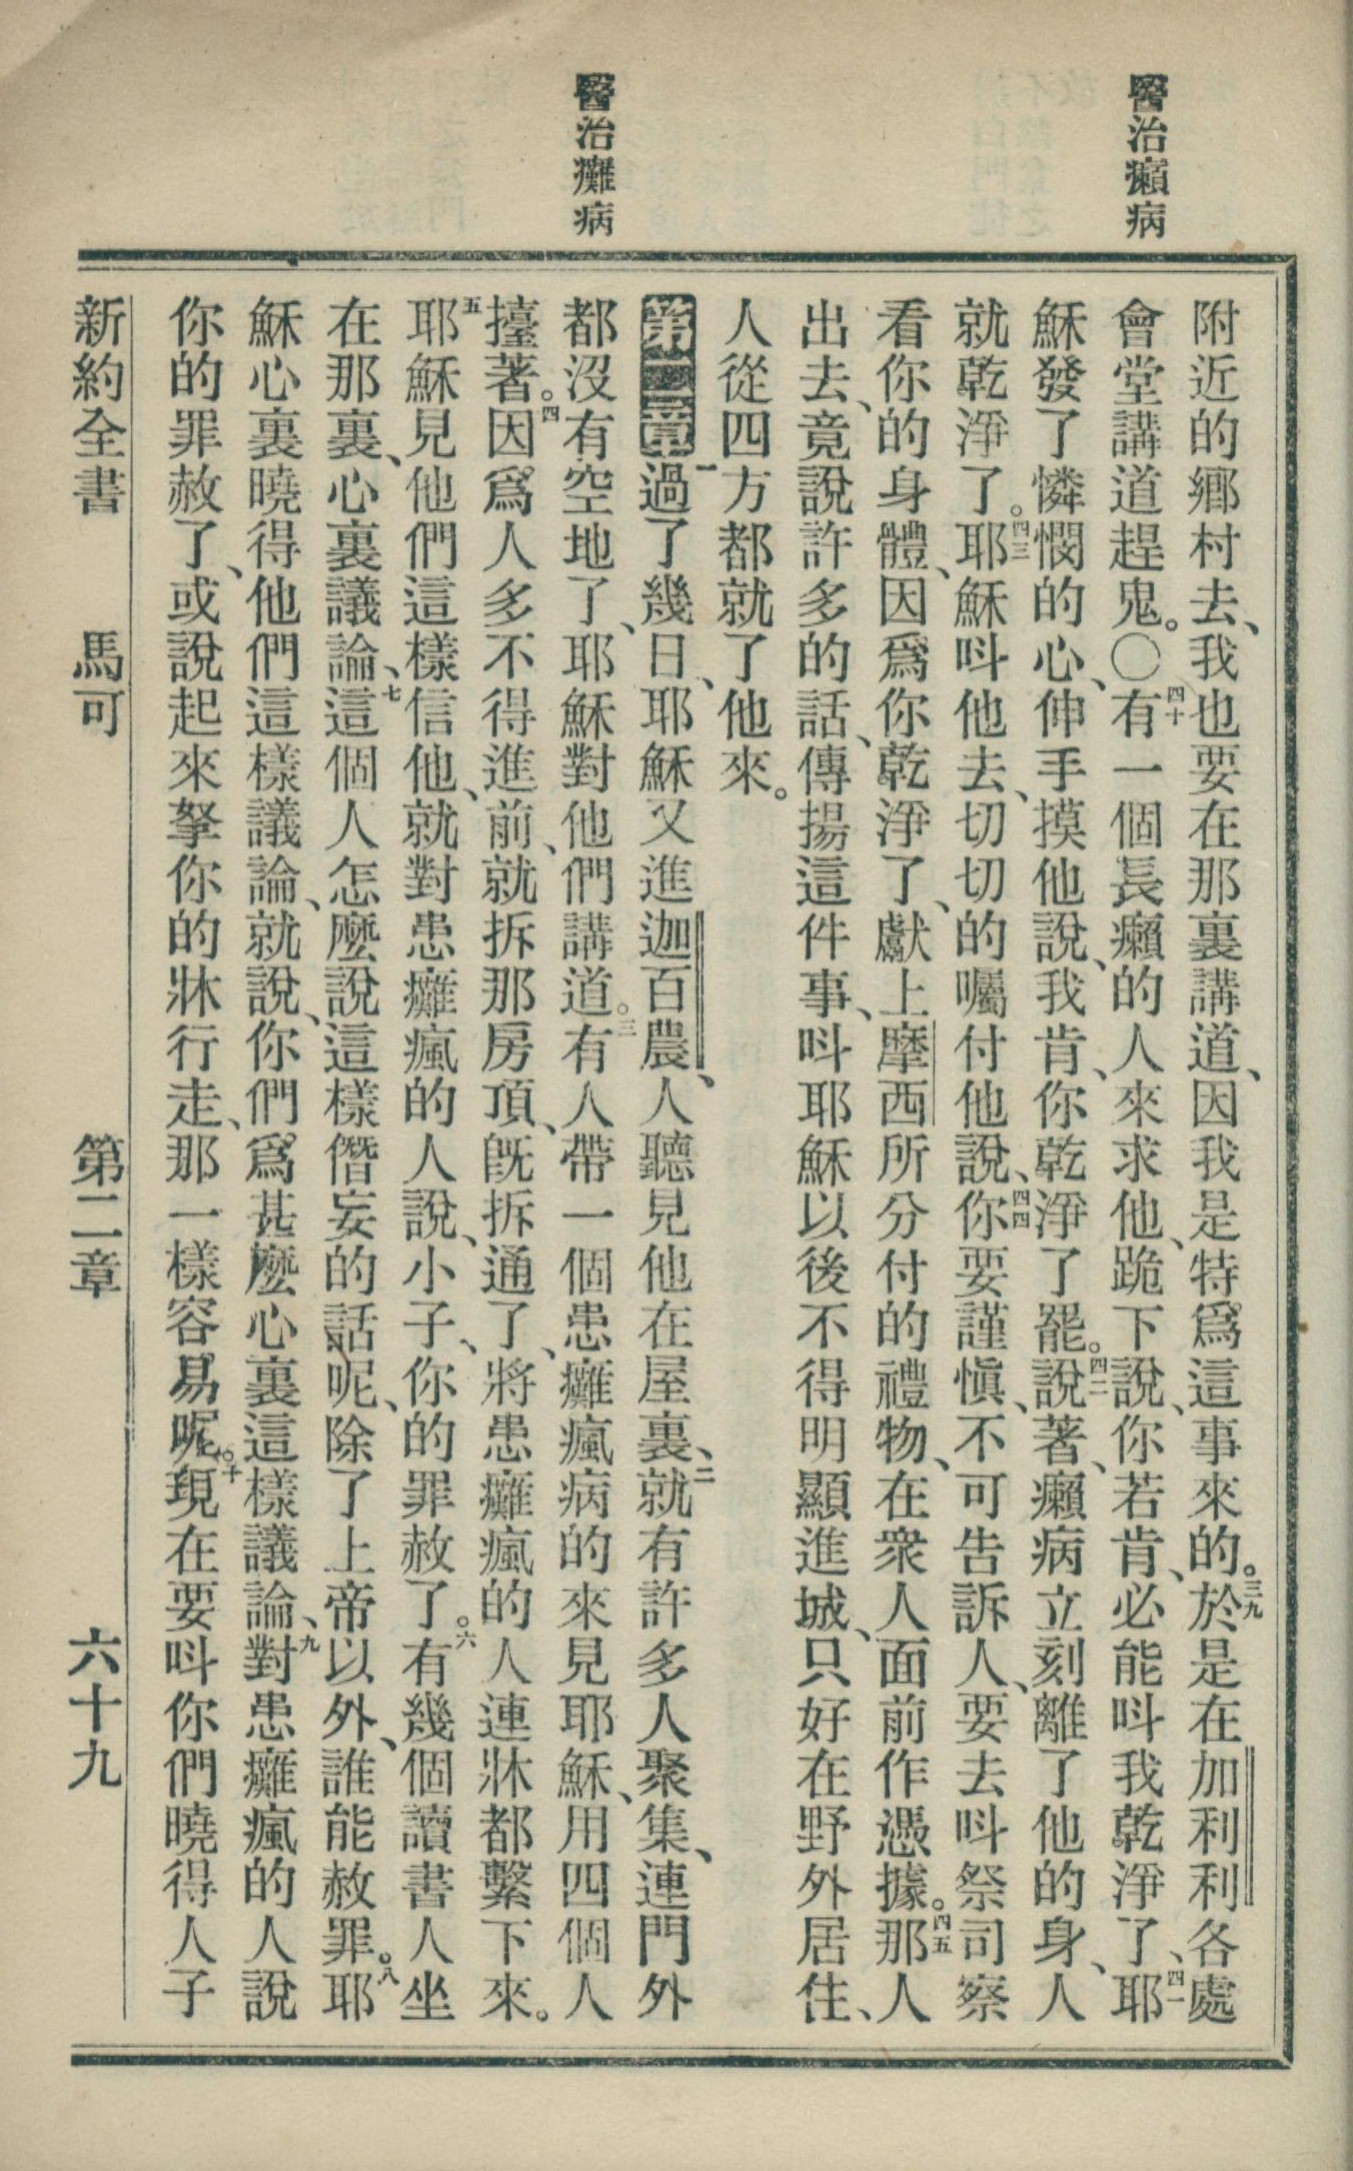 醫治癩病
醫治癱病
附近的鄉村去、我也要在那裏講道、因我是特爲這事來的。三九於是在加利利各處
會堂講道趕鬼。〇四十有一個長癩的人來求他、跪下說、你若肯、必能呌我乾淨了、四一耶
穌發了憐憫的心、伸手摸他說、我肯、你乾淨了罷。四二說著、癩病立刻離了他的身、人
就乾淨了。四三耶穌呌他去、切切的囑付他說、四四你要謹愼、不可告訴人、要去呌祭司察
看你的身體、因爲你乾淨了、獻上摩西所分付的禮物、在衆人面前作憑據。四五那人
出去、竟說許多的話、傳揚這件事、呌耶穌以後不得明顯進城、只好在野外居住、
人從四方都就了他來。
第二章一過了幾日、耶穌又進迦百農、人聽見他在屋裏、二就有許多人聚集、連門外
都沒有空地了、耶穌對他們講道。三有人帶一個患癱瘋病的來見耶穌、用四個人
擡著。四因爲人多不得進前、就拆那房頂、旣拆通了、將患癱瘋的人連牀都繫下來。
五耶穌見他們這樣信他、就對患癱瘋的人說、小子、你的罪赦了。六有幾個讀書人坐
在那裏、心裏議論、七這個人怎麼說這樣僭妄的話呢、除了上帝以外、誰能赦罪。八耶
穌心裏曉得他們這樣議論、就說、你們爲甚麼心裏這樣議論、九對患癱瘋的人說
你的罪赦了、或說起來拏你的牀行走、那一樣容易呢。十現在要呌你們曉得人子
新約全書 馬可 第二章 六十九